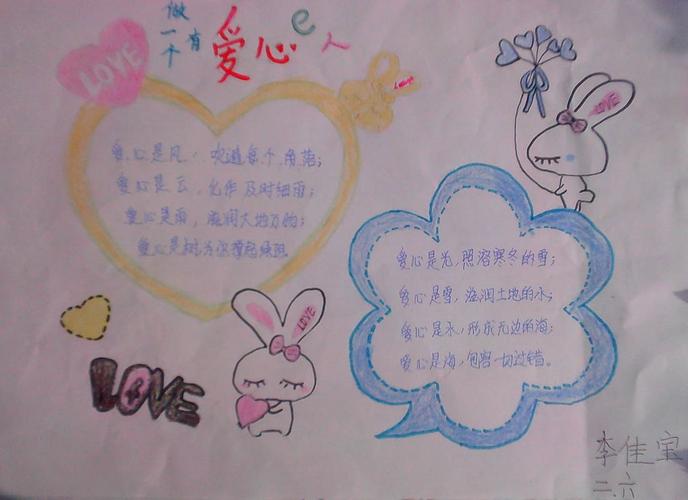 做一个有爱心e人
LOVE
爱心是风，吹遍每个角落；
爱心是云，化作及时细雨；
爱心是雨，滋润大地万物；
爱心是树，为你撑起绿阴
LOVE
爱心是光，照溶寒冬的雪；
爱心是雪，滋润土地的水；
爱心是水，形成无边的海；
爱心是海，包容一切过错。
LOVE
LOVE
李佳宝
二.六